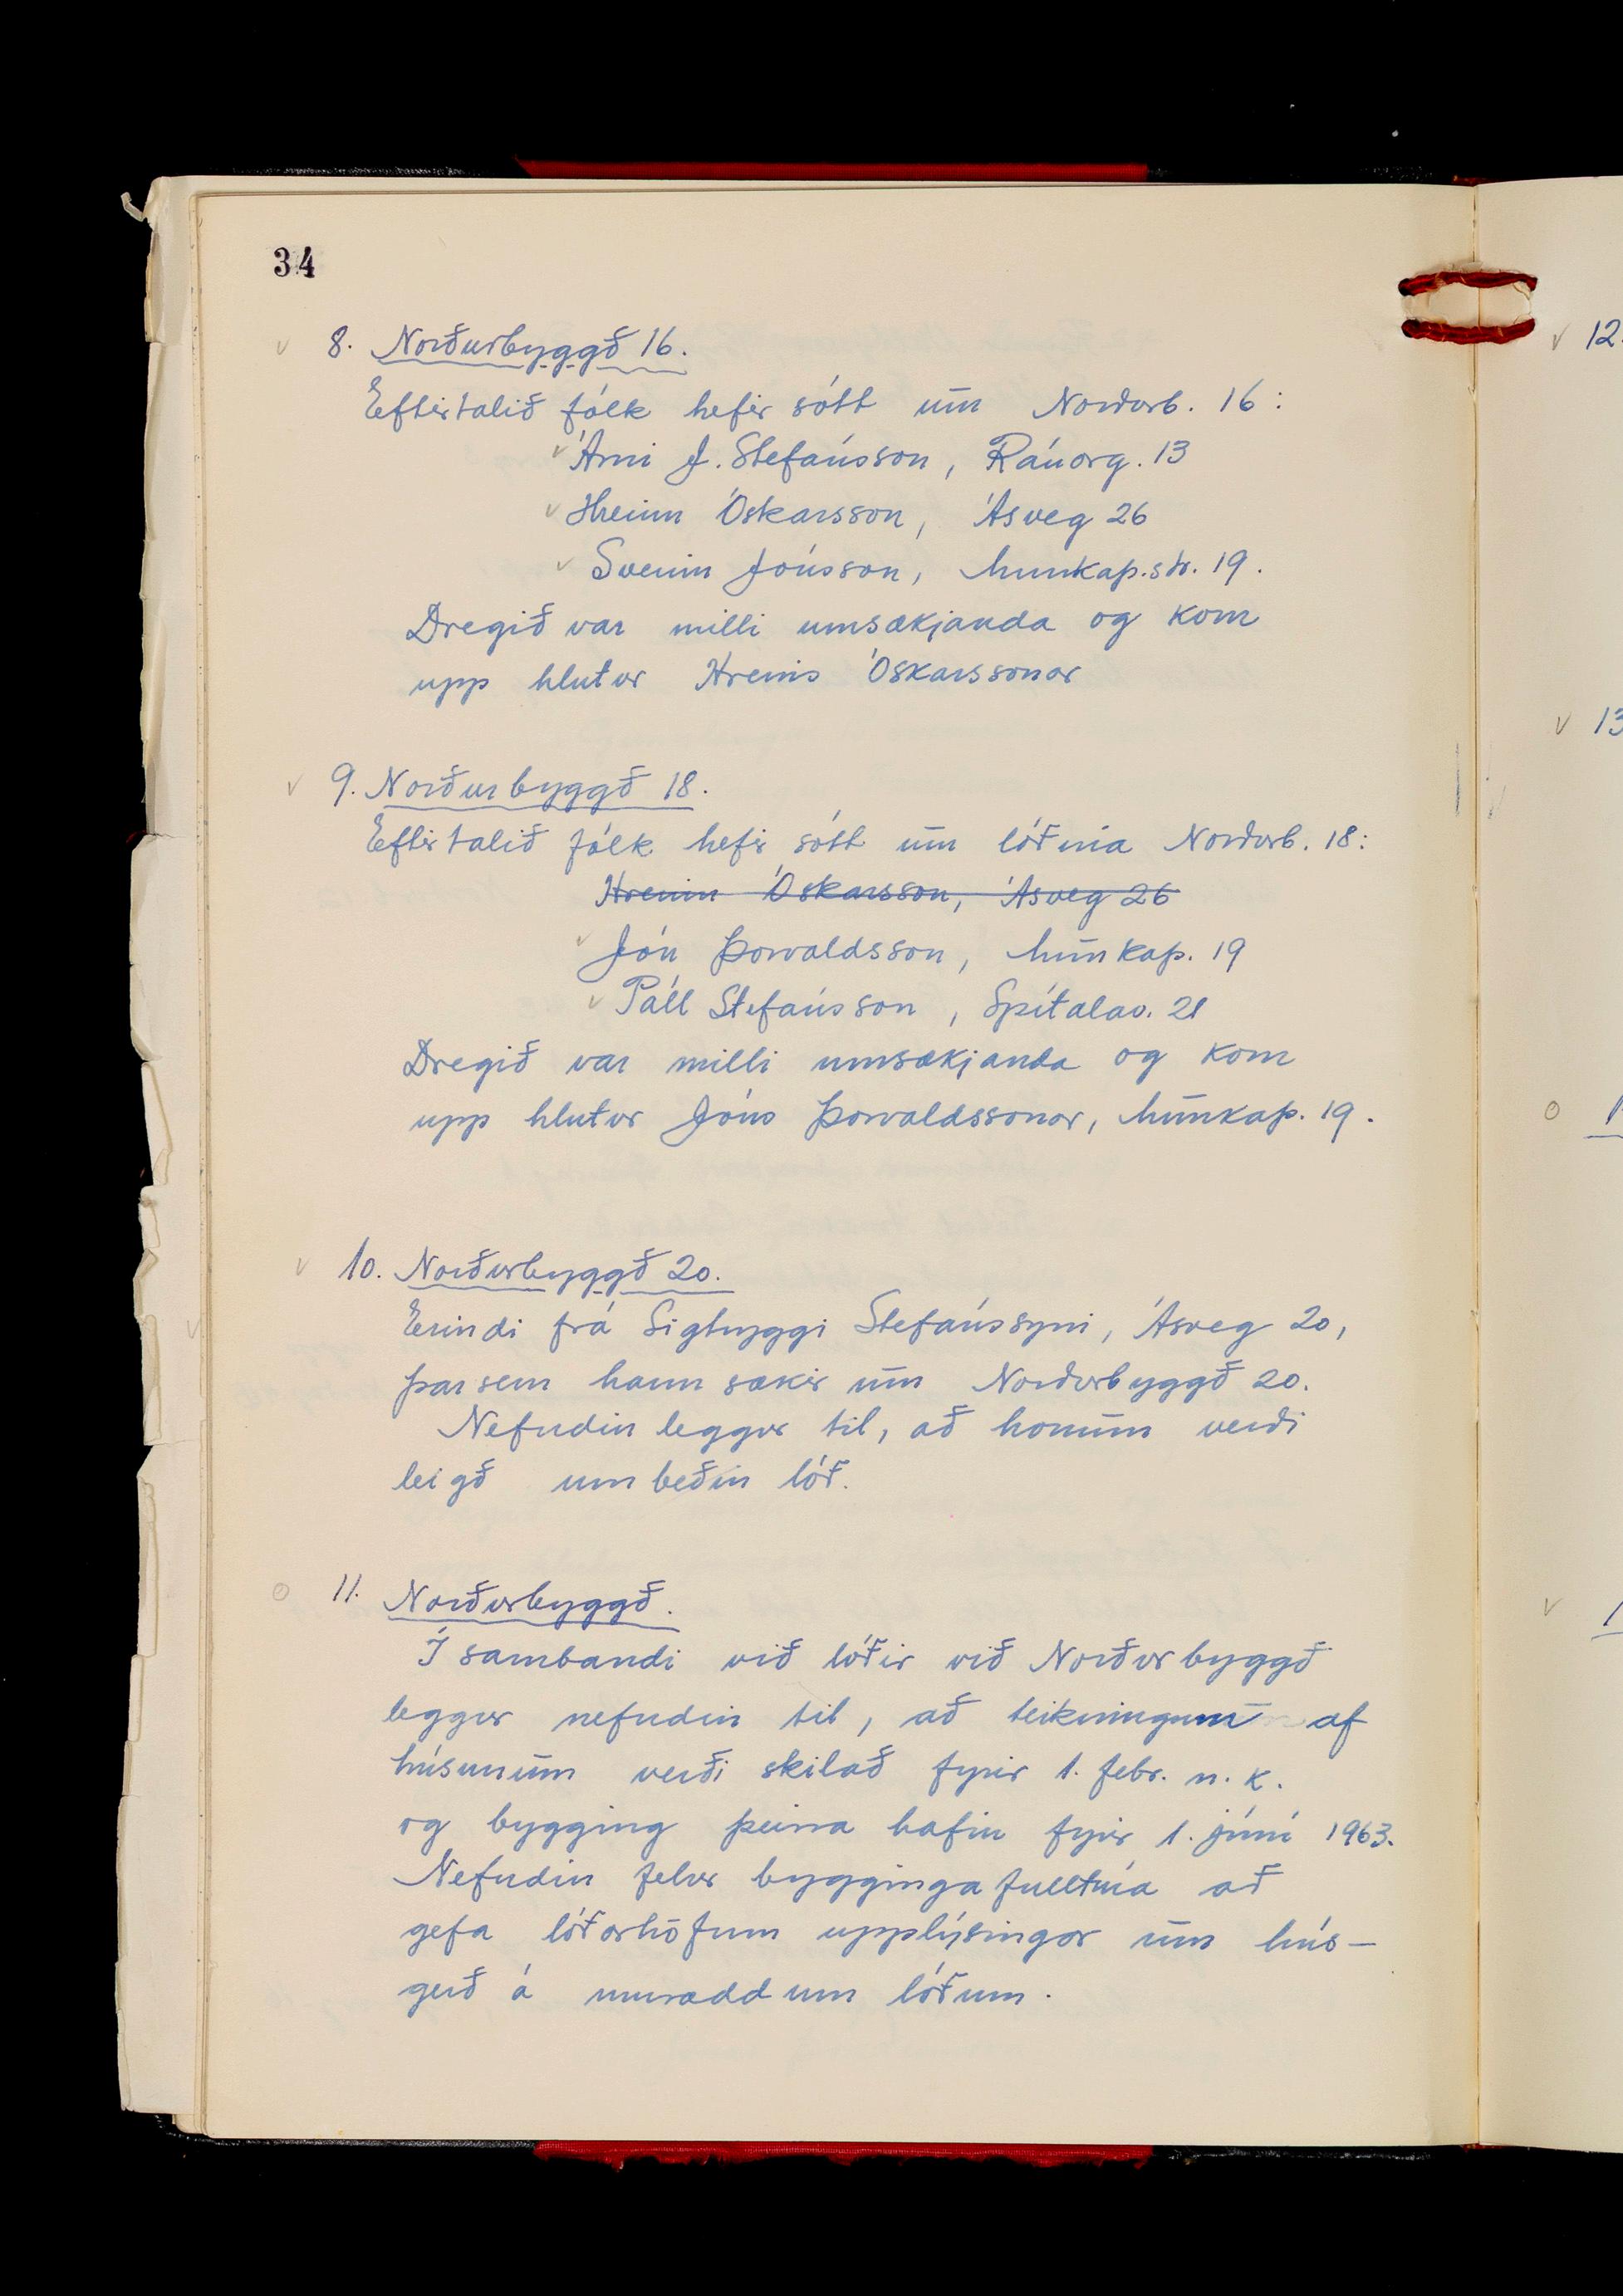 34
8. Norðurbyggð 16.
Eftirtalið fólk hefir sótt um Norðurb. 16:
Árni J. Stefánsson, Ránarg. 13
Hreinn Óskarsson, Ásveg 26
Sveinn Jónsson, Munkaþ.str. 19.
Dregið var milli umsækjanda og kom
upp hlutur Hreins Óskarssonar
9. Norðurbyggð 18.
Eftirtalið fólk hefir sótt um lóðina Norðurb. 18:
Hreinn Óskarsson, Ásveg 26
Jón Þorvaldsson, Munkaþ. 19
Páll Stefánsson, Spítalav. 21
Dregið var milli umsækjanda og kom
upp hlutur Jóns Þorvaldssonar, Munkaþ. 19.
10. Norðurbyggð 20.
Erindi frá Sigtryggi Stefánssyni, Ásveg 20,
þar sem hann sækir um Norðurbyggð 20.
Nefndin leggur til, að honum verði
leigð umbeðin lóð.
11. Norðurbyggð.
Í sambandi við lóðir við Norðurbyggð
leggur nefndin til, að teikningum af
húsunum verði skilað fyrir 1. febr. n.k.
og bygging þeirra hafin fyrir 1. júní 1963.
Nefndin felur byggingafulltrúa að
gefa lóðarhöfum upplýsingar um hús-
gerð á umræddum lóðum.
12.
13